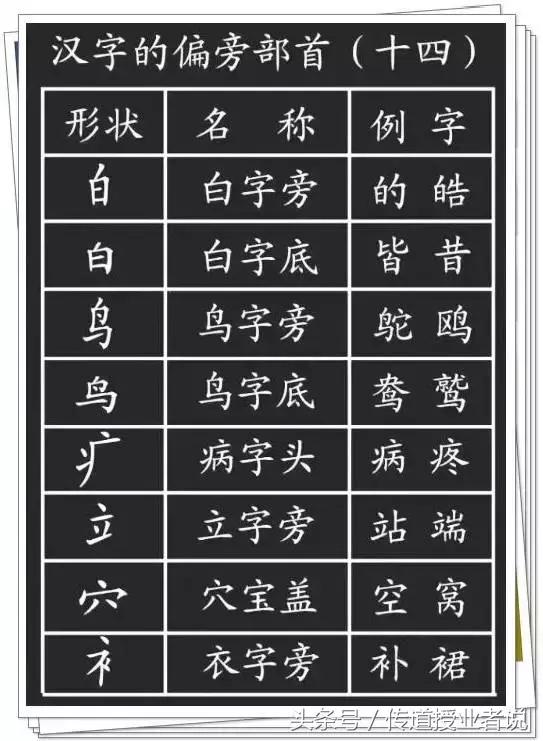 汉字的偏旁部首（十四）
形状 名 称 例 字
白 白字旁 的 皓
白 白字底 皆 昔
鸟 鸟字旁 鸵 鸥
鸟 鸟字底 鸯 鹫
疒 病字头 病 疼
立 立字旁 站 端
穴 穴宝盖 空 窝
衤 衣字旁 补 裙
头条号／传道授业者说